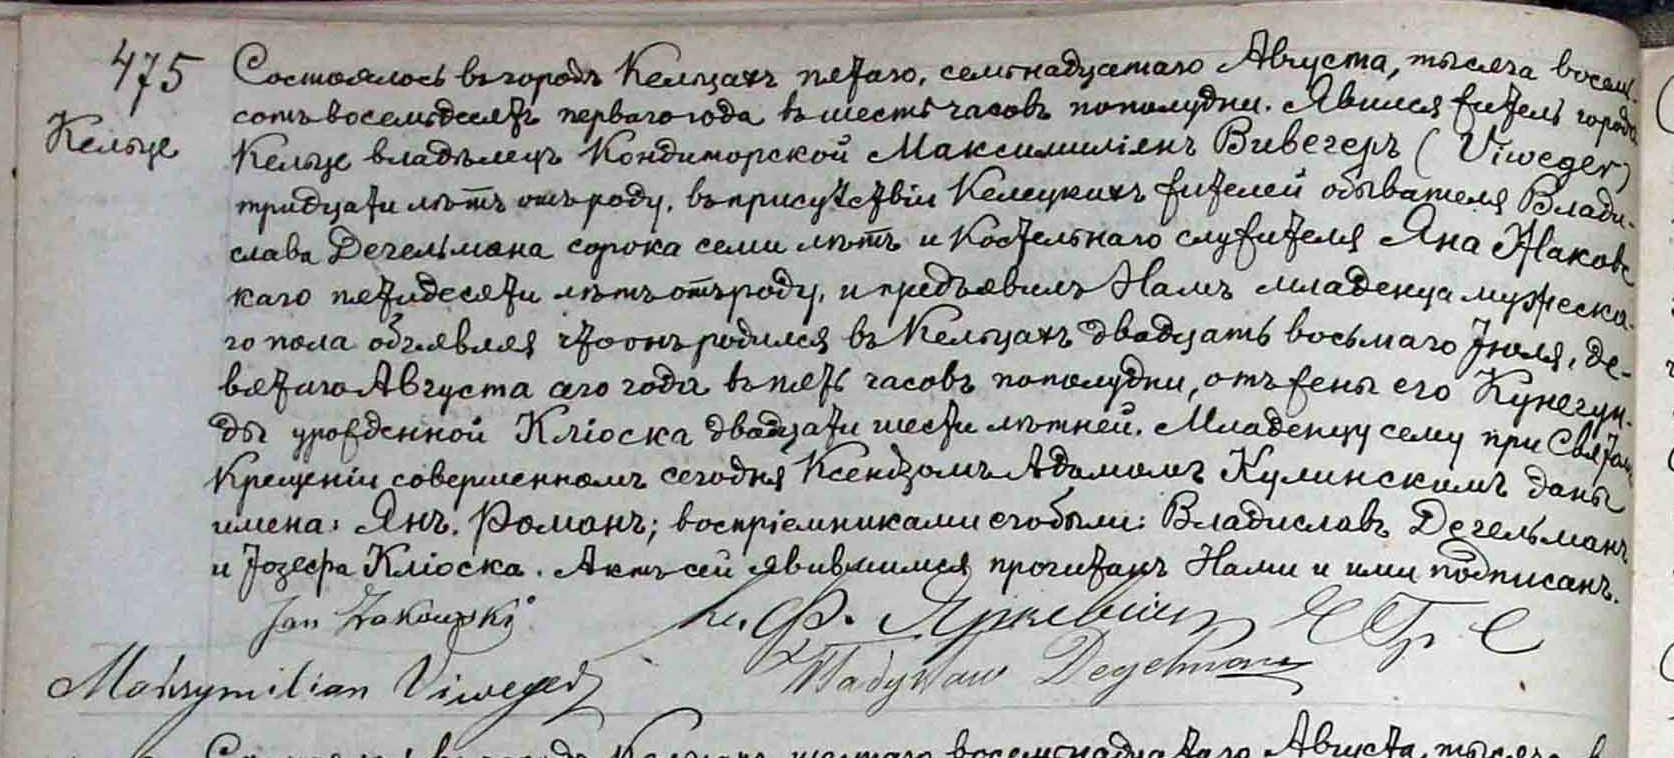 475
Кельце
Состоялось въ городѣ Кельцахъ пятаго, семнадцатаго Августа, тысяча восемь-
сотъ восемьдесятъ перваго года въ шесть часовъ пополудни. Явился житель города
Кельце владѣлецъ Кондиторской Максимиліянъ Вивегеръ (Viweger)
тридцати лѣтъ отъ роду, въ присутствіи Келецкихъ жителей обывателя Влади-
слава Дегельмана сорока семи лѣтъ и Костельнаго служителя Яна Жаковс
каго пятидесяти лѣтъ отъ роду, и предъявилъ Намъ младенца мужеска-
го пола объявляя что онъ родился въ Кельцахъ двадцать восьмаго Іюля, де-
вятаго Августа сего года въ пять часовъ пополудни, отъ жены его Кунегун-
ды урожденной Кліоска двадцати шести лѣтней. Младенцу сему при Святомъ
Крещеніи совершенномъ сегодня Ксендзомъ Адамомъ Кулинскимъ даны
имена: Янъ, Романъ; воспріемниками его были: Владиславъ Дегельманъ
и Іозефа Кліоска. Актъ сей явившимся прочитанъ Нами и ими подписанъ.
Jan Żakowski
Maksymilian Viweger
Władysław Degelman
Состоялось въ городѣ Кельцахъ восемнадцатаго Августа, тысяча в